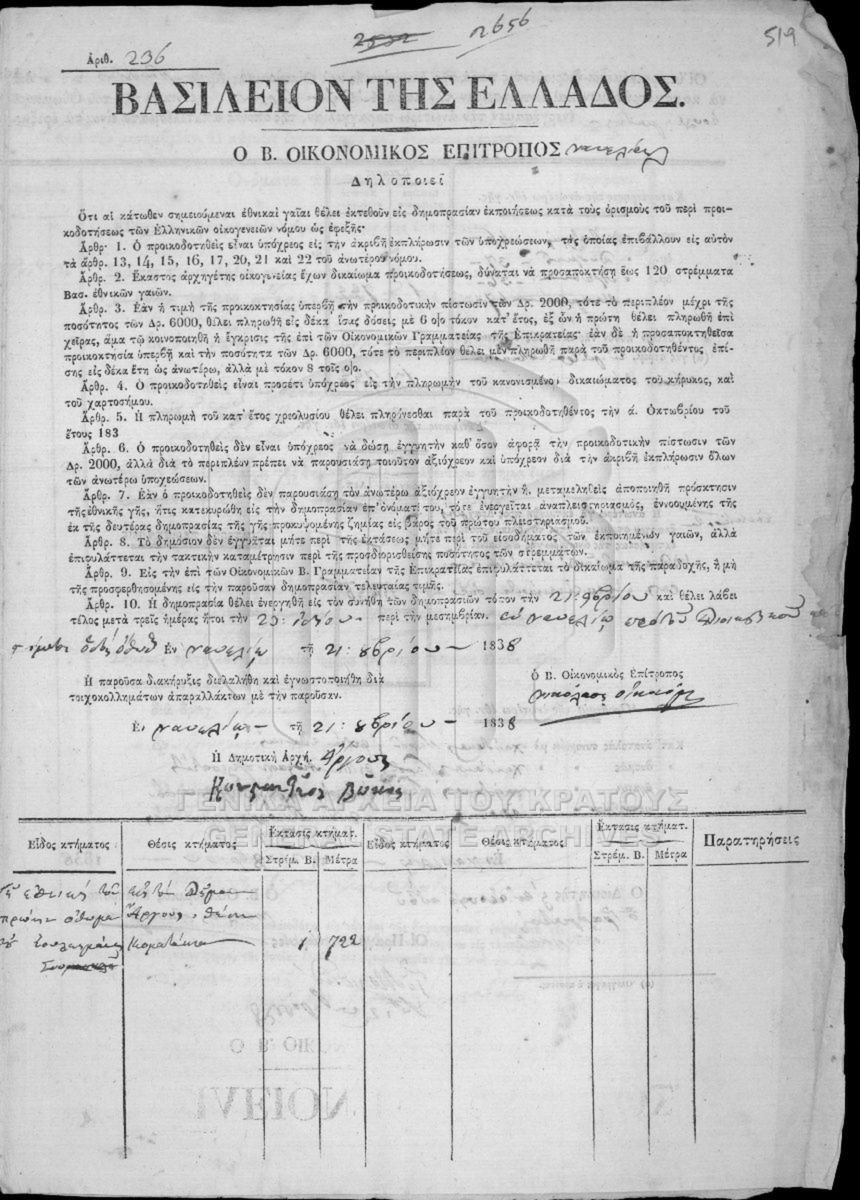 519
2532 2656
Ἀριθ. 236
ΒΑΣΙΛΕΙΟΝ ΤΗΣ ΕΛΛΑΔΟΣ.
Ο Β. ΟΙΚΟΝΟΜΙΚΟΣ ΕΠΙΤΡΟΠΟΣ Ναυπλίας
Δηλοποιεῖ
Ὅτι αἱ κάτωθεν σημειούμεναι ἐθνικαὶ γαῖαι θέλει ἐκτεθοῦν εἰς δημοπρασίαν ἐκποιήσεως κατὰ τοὺς ὁρισμοὺς τοῦ περὶ προι-
κοδοτήσεως τῶν Ἑλληνικῶν οἰκογενειῶν νόμου ὡς ἐφεξῆς·
Ἄρθρ· 1. Ὁ προικοδοτηθεὶς εἶναι ὑπόχρεος εἰς τὴν ἀκριβῆ ἐκπλήρωσιν τῶν ὑποχρεώσεων, τὰς ὁποίας ἐπιβάλλουν εἰς αὐτὸν
τὰ ἄρθρ. 13, 14, 15, 16, 17, 20, 21 καὶ 22 τοῦ ἀνωτέρω νόμου.
Ἄρθρ. 2. Ἕκαστος ἀρχηγέτης οἰκογενείας ἔχων δικαίωμα προικοδοτήσεως, δύναται νὰ προσαποκτήσῃ ἕως 120 στρέμματα
Βασ. ἐθνικῶν γαιῶν.
Ἄρθρ. 3. Ἐὰν ἡ τιμὴ τῆς προικοκτησίας ὑπερβῇ τὴν προικοδοτικὴν πίστωσιν τῶν Δρ. 2000, τότε τὸ περιπλέον μέχρι τῆς
ποσότητος τῶν Δρ. 6000, θέλει πληρωθῆ εἰς δέκα ἴσας δόσεις μὲ 6 ο)ο τόκον κατ' ἔτος, ἐξ ὧν ἡ πρώτη θέλει πληρωθῆ ἐπὶ
χεῖρας, ἅμα τῷ κοινοποιηθῇ ἡ ἔγκρισις τῆς ἐπὶ τῶν Οἰκονομικῶν Γραμματείας τῆς Ἐπικρατείας· ἐὰν δὲ ἡ προσαποκτηθεῖσα
προικοκτησία ὑπερβῇ καὶ τὴν ποσότητα τῶν Δρ. 6000, τότε τὸ περιπλέον θέλει μὲν πληρωθῆ παρὰ τοῦ προικοδοτηθέντος ἐπί-
σης εἰς δέκα ἔτη ὡς ἀνωτέρω, ἀλλὰ μὲ τόκον 8 τοῖς ο)ο.
Ἄρθρ. 4. Ὁ προικοδοτηθεὶς εἶναι προσέτι ὑπόχρεος εἰς τὴν πληρωμὴν τοῦ κανονισμένου δικαιώματος τοῦ κήρυκος, καὶ
τοῦ χαρτοσήμου.
Ἄρθρ. 5. Ἡ πληρωμὴ τοῦ κατ' ἔτος χρεολυσίου θέλει πληρώνεσθαι παρὰ τοῦ προικοδοτηθέντος τὴν ά. Ὀκτωβρίου τοῦ
ἔτους 183
Ἄρθρ. 6. Ὁ προικοδοτηθεὶς δὲν εἶναι ὑπόχρεος νὰ δώσῃ ἐγγυητὴν καθ' ὅσον ἀφορᾷ τὴν προικοδοτικὴν πίστωσιν τῶν
Δρ. 2000, ἀλλὰ διὰ τὸ περιπλέον πρέπει νὰ παρουσιάσῃ τοιοῦτον ἀξιόχρεον καὶ ὑπόχρεον διὰ τὴν ἀκριβῆ ἐκπλήρωσιν ὅλων
τῶν ἀνωτέρω ὑποχεώσεων.
Ἄρθρ. 7. Ἐὰν ὁ προικοδοτηθεὶς δὲν παρουσιάσῃ τὸν ἀνωτέρω ἀξιόχρεον ἐγγυητὴν ἢ μεταμεληθεὶς ἀποποιηθῇ πρόσκτησιν
τῆς ἐθνικῆς γῆς, ἥτις κατεκυρώθη εἰς τὴν δημοπρασίαν ἐπ' ὀνόματί του, τότε ἐνεργεῖται ἀναπλειστηριασμὸς, ἐννοουμένης τῆς
ἐκ τῆς δευτέρας δημοπρασίας τῆς γῆς προκυψομένης ζημίας εἰς βάρος τοῦ πρώτου πλειστηριασμοῦ.
Ἄρθρ. 8. Τὸ δημόσιον δὲν ἐγγυᾶται μήτε περὶ τῆς ἐκτάσεως μήτε περὶ τοῦ εἰσοδήματος τῶν ἐκποιημένων γαιῶν, ἀλλὰ
ἐπιφυλάττεται τὴν τακτικὴν καταμέτρησιν περὶ τῆς προσδιορισθείσης ποσότητος τῶν στρεμμάτων.
Ἄρθρ. 9. Εἰς τὴν ἐπὶ τῶν Οἰκονομικῶν Β. Γραμματείαν τῆς Ἐπικρατείας ἐπιφυλάττεται τὸ δικαίωμα τῆς παραδοχῆς, ἢ μὴ
τῆς προσφερθησομένης εἰς τὴν παροῦσαν δημοπρασίαν τελευταίας τιμῆς.
Ἄρθρ. 10. Ἡ δημοπρασία θέλει ἐνεργηθῆ εἰς τὸν συνήθη τῶν δημοπρασιῶν τόπον τὴν 21: 9βρίου καὶ θέλει λάβει
τέλος μετὰ τρεῖς ἡμέρας ἤτοι τὴν 23: περὶ τὴν μεσημβρίαν. ἐν Ναυπλίᾳ
Ἐν Ναυπλίᾳ τῇ 21: 8βρίου 1838
Ἡ παροῦσα διακήρυξις διελαλήθη καὶ ἐγνωστοποιήθη διὰ
τοιχοκολλημάτων ἀπαραλλάκτων μὲ τὴν παροῦσαν.
Ὁ Β. Οἰκονομικὸς Ἐπίτροπος
Ἐν Ναυπλίᾳ τῇ 21: 8βρίου 1838
Ἡ Δημοτικὴ Ἀρχή. Ἄργους
ΓΕΝΙΚΑ ΑΡΧΕΙΑ ΤΟΥ ΚΡΑΤΟΥΣ
GENERAL STATE ARCHIVES
Εἶδος κτήματος Θέσις κτήματος Ἔκτασις κτήματ. Στρέμ. Β. Μέτρα Εἶδος κτήματος Θέσις κτήματος Ἔκτασις κτήματ. Στρέμ. Β. Μέτρα Παρατηρήσεις
Ἄργους θέσιν
1 722